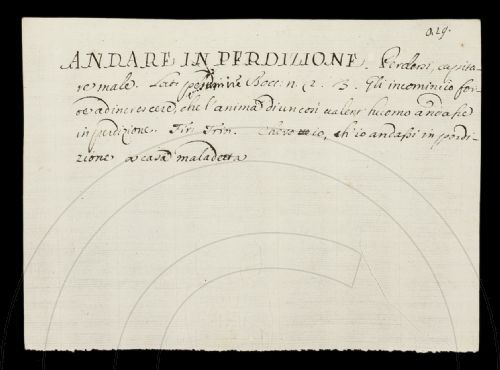 a.29.
ANDARE IN PERDIZIONE. Perdersi, capita-
re male. Lat. Bocc. n. 2. 3. Gli incominciò for-
te ad increscere, che l'anima d'un così valent' huomo andasse
in perdizione. Fir. Trin. ch'io andassi in perdi-
zione a casa maladetta